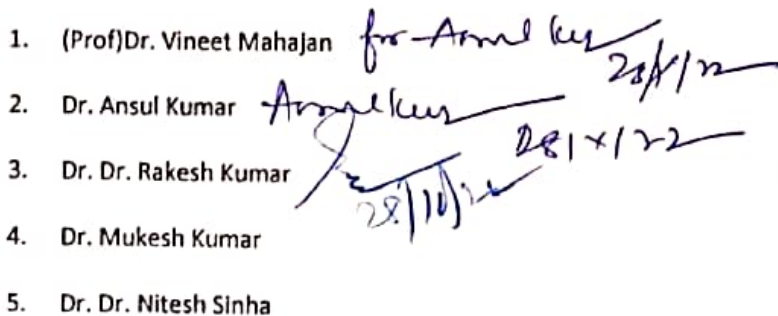 1. (Prof)Dr. Vineet Mahajan for Ansul Kur 28/X/22
2. Dr. Ansul Kumar Ansul Kur 28/X/22
3. Dr. Dr. Rakesh Kumar 28/10/22
4. Dr. Mukesh Kumar
5. Dr. Dr. Nitesh Sinha